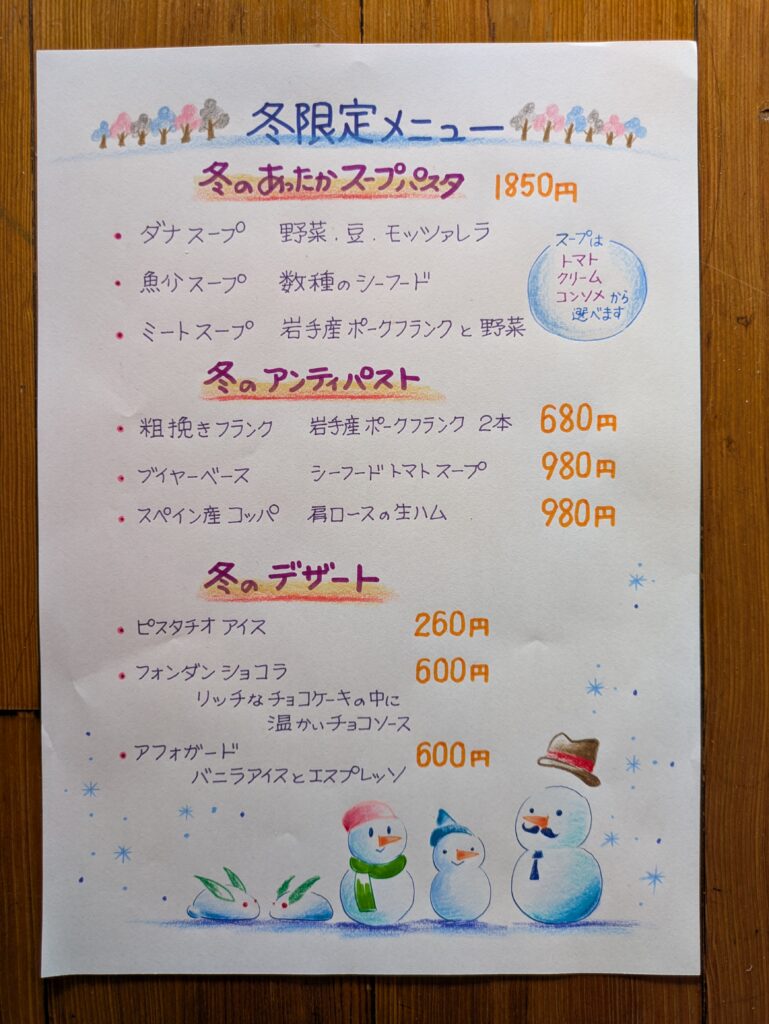 冬限定メニュー
冬のあったかスープパスタ 1850円
・ダナスープ 野菜.豆.モッツァレラ
・魚介スープ 数種のシーフード
・ミートスープ 岩手産ポークフランクと野菜
スープは
トマト
クリーム
コンソメから
選べます
冬のアンティパスト
・粗挽きフランク 岩手産ポークフランク 2本 680円
・ブイヤーベース シーフードトマトスープ 980円
・スペイン産コッパ 肩ロースの生ハム 980円
冬のデザート
・ピスタチオアイス 260円
・フォンダンショコラ 600円
リッチなチョコケーキの中に
温かいチョコソース
・アフォガード 600円
バニラアイスとエスプレッソ